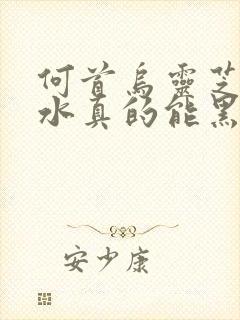 何首乌靈芝
水真的能黑
安少康